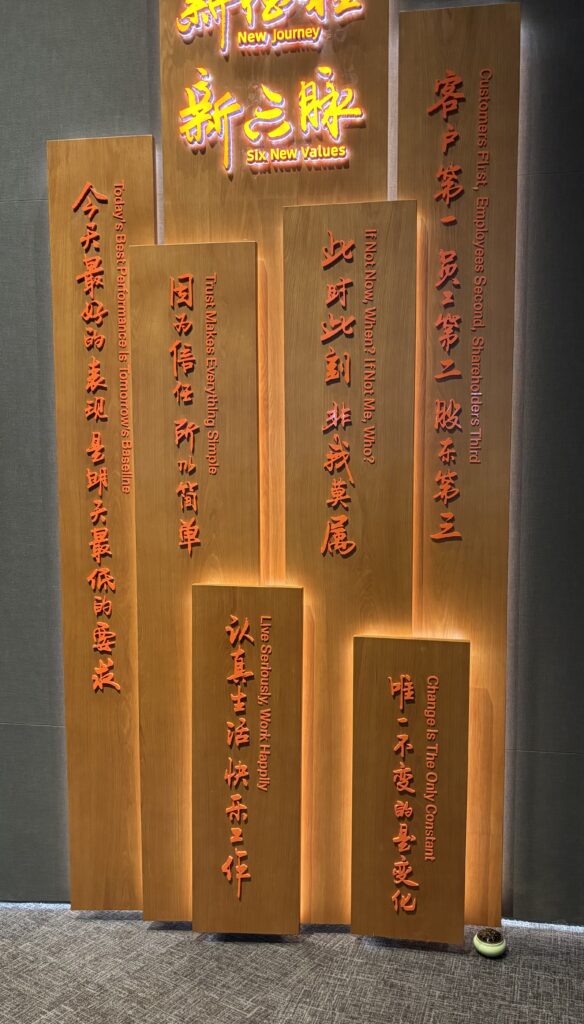 新征程
New Journey
新六脉
Six New Values
客户第一 员工第二 股东第三
Customers First, Employees Second, Shareholders Third
此时此刻 非我莫属
If Not Now, When? If Not Me, Who?
因为信任 所以简单
Trust Makes Everything Simple
今天最好的表现是明天最低的要求
Today's Best Performance Is Tomorrow's Baseline
唯一不变的是变化
Change Is The Only Constant
认真生活 快乐工作
Live Seriously, Work Happily